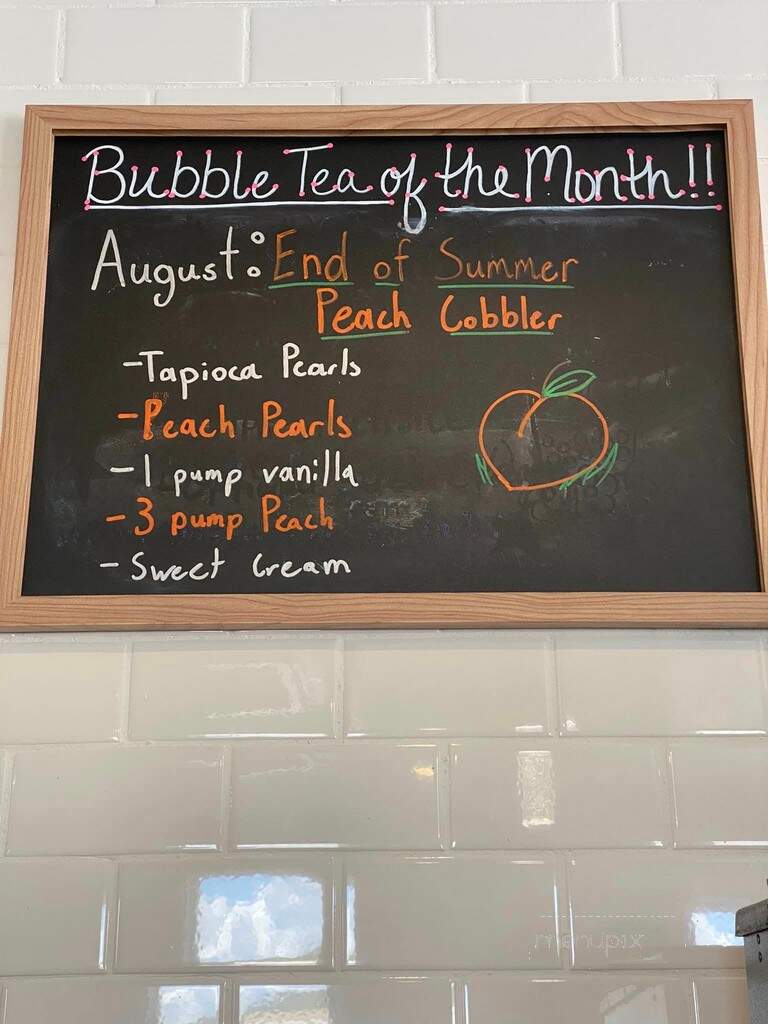 Bubble Tea of the Month!!
August: End of Summer
Peach Cobbler
-Tapioca Pearls
-Peach Pearls
-1 pump vanilla
-3 pump Peach
-Sweet Cream